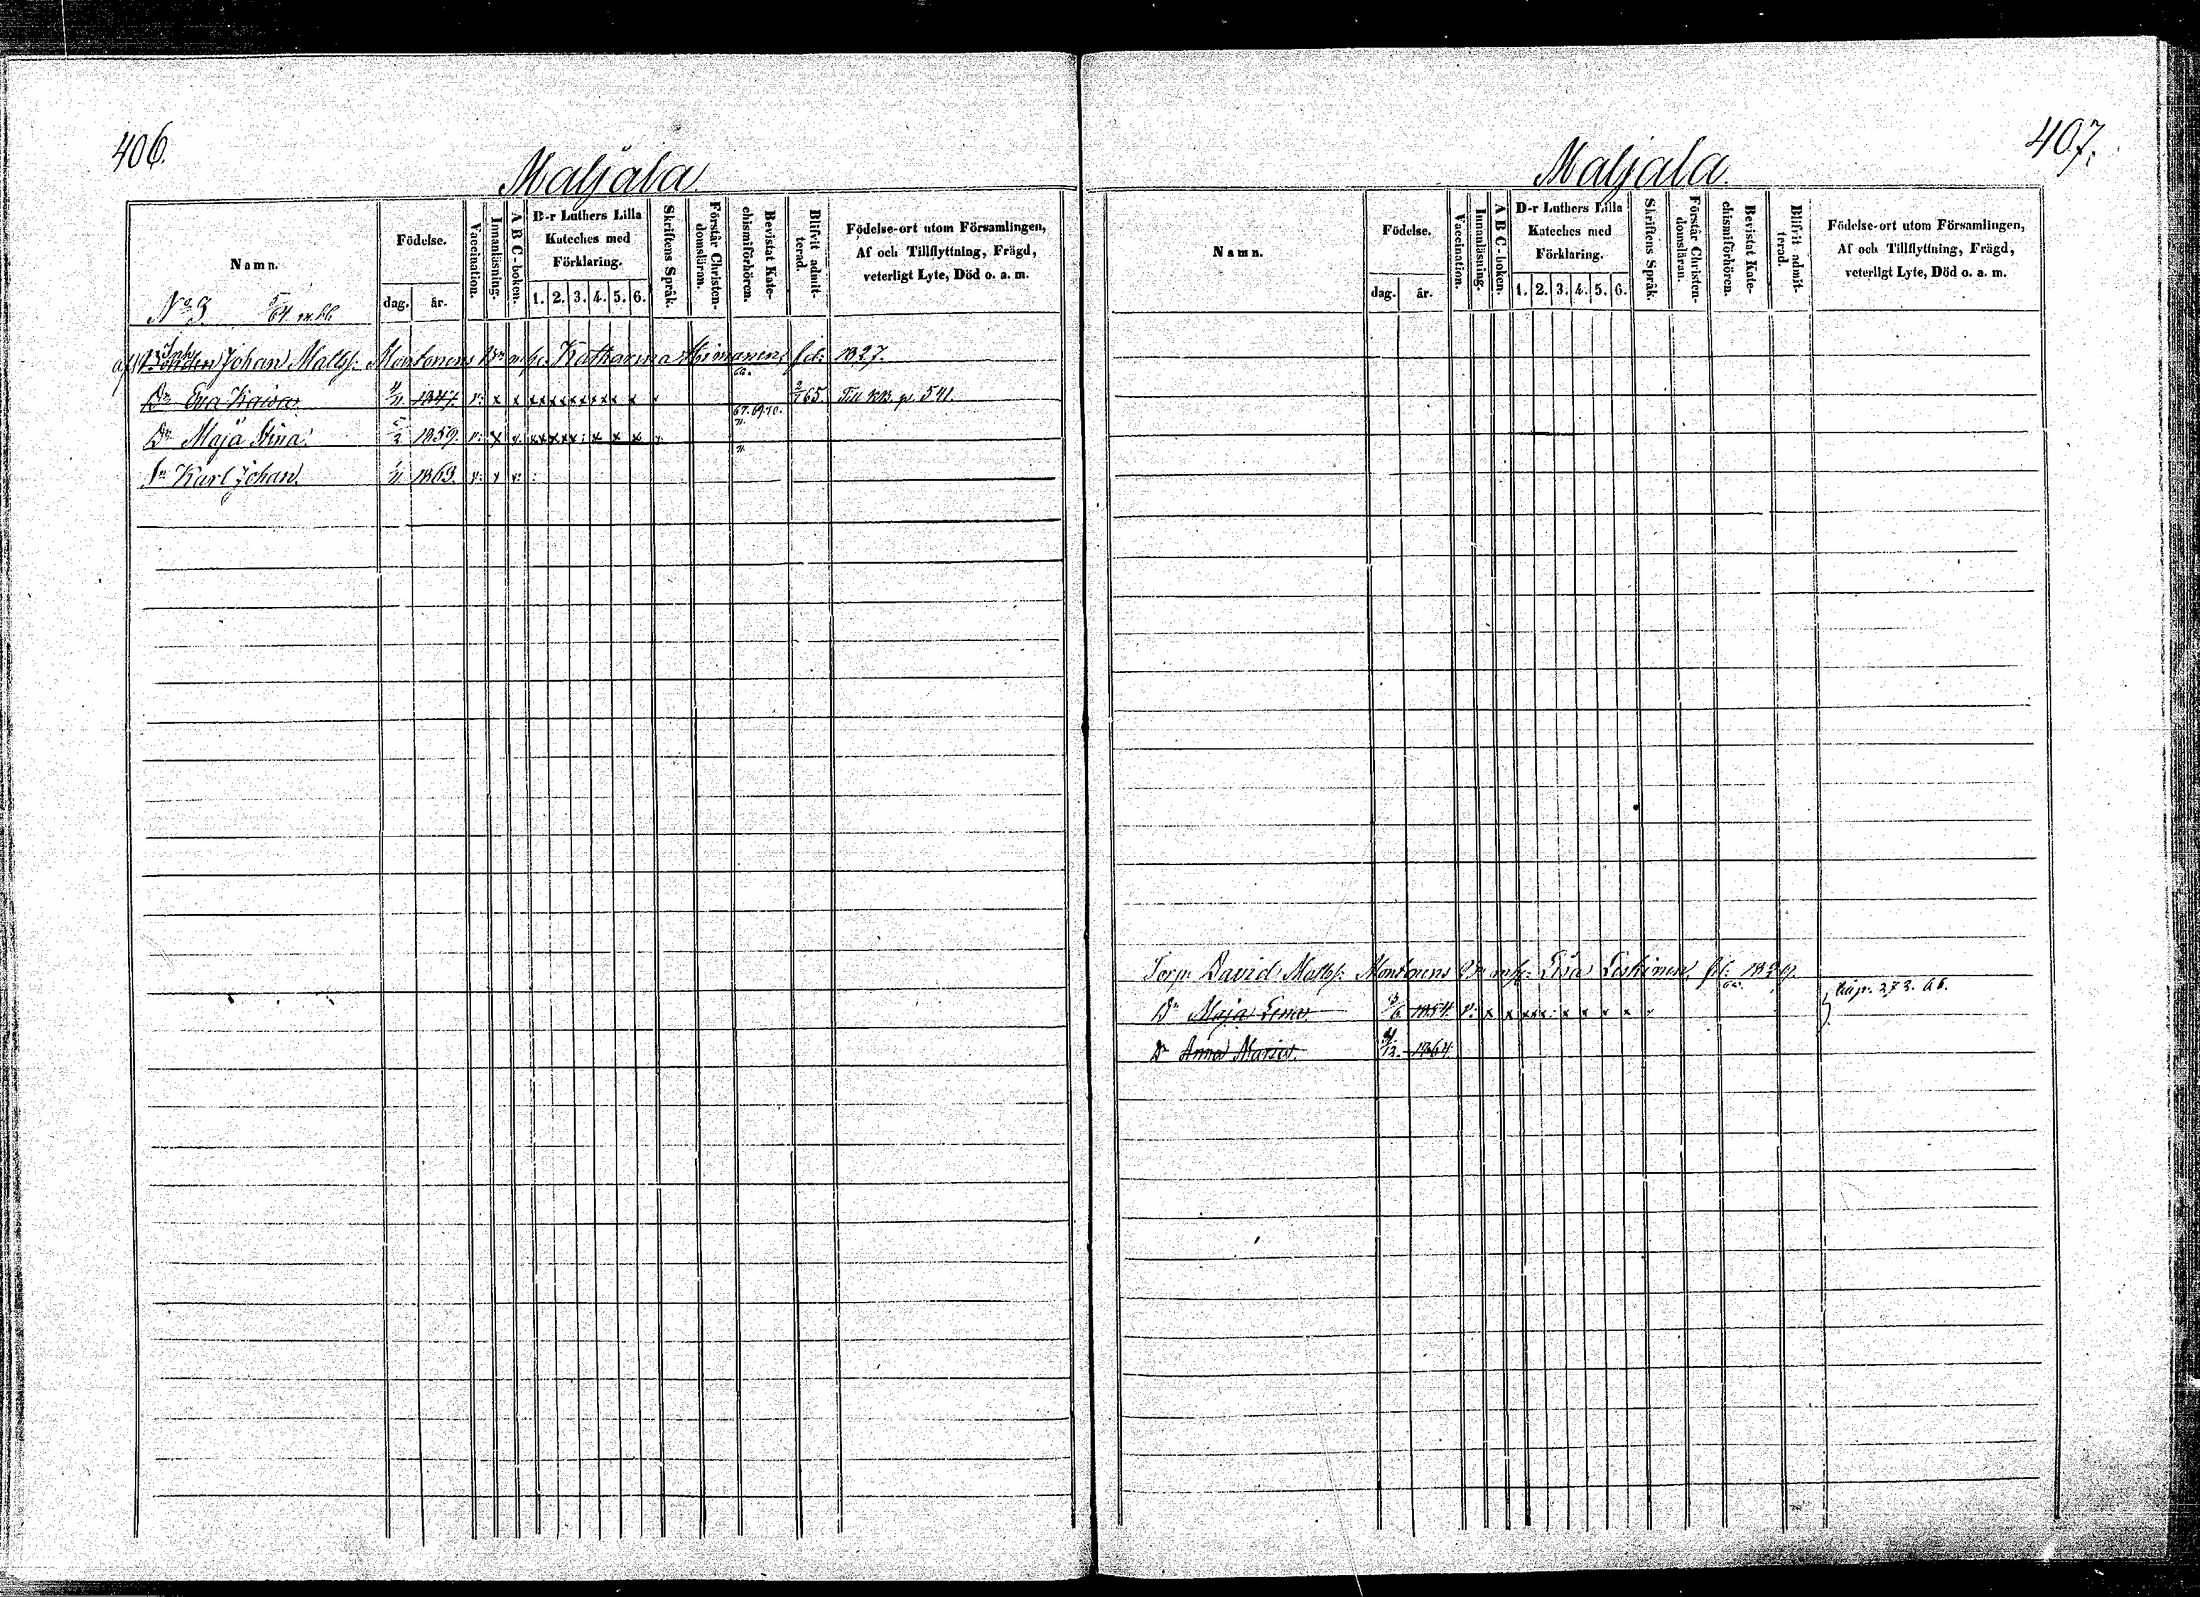 406.
Maljala
Namn.
Födelse.
dag. år.
Vaccination.
Innanläsning.
A B C-boken.
D-r Luthers Lilla
Kateches med
Förklaring.
1. 2. 3. 4. 5. 6.
Skriftens Språk.
Förstår Christen-
domsläran.
Bevistat Kate-
chismiförhören.
Blifvit admit-
terad.
Födelse-ort utom Församlingen,
Af och Tillflyttning, Frägd,
veterligt Lyte, Död o. a. m.
No 3.
Johan Matss: Montonens Dr m/h: Katharina fd: 1827.
Dr Eva Kaisa 1847. v: x x x x x x x x x x x 2/7 65 Till KB. p. 541.
67. 69. 70.
Dr Maja Stina. 5/2 1859. v: x v: x x x x x : x x x
Sn Karl Johan. 1863. v: v v: :
407.
Maljala.
Namn.
Födelse.
dag. år.
Vaccination.
Innanläsning.
A B C-boken.
D-r Luthers Lilla
Kateches med
Förklaring.
1. 2. 3. 4. 5. 6.
Skriftens Språk.
Förstår Christen-
domsläran.
Bevistat Kate-
chismiförhören.
Blifvit admit-
terad.
Födelse-ort utom Församlingen,
Af och Tillflyttning, Frägd,
veterligt Lyte, Död o. a. m.
Torp. David Matss: Montonens Dr m/h: Lisa Leskinen fd:
p. 273.
Dr Maja Lena 1854. v: x x x x x : x x x x
Dr Anna Maria. 1864.